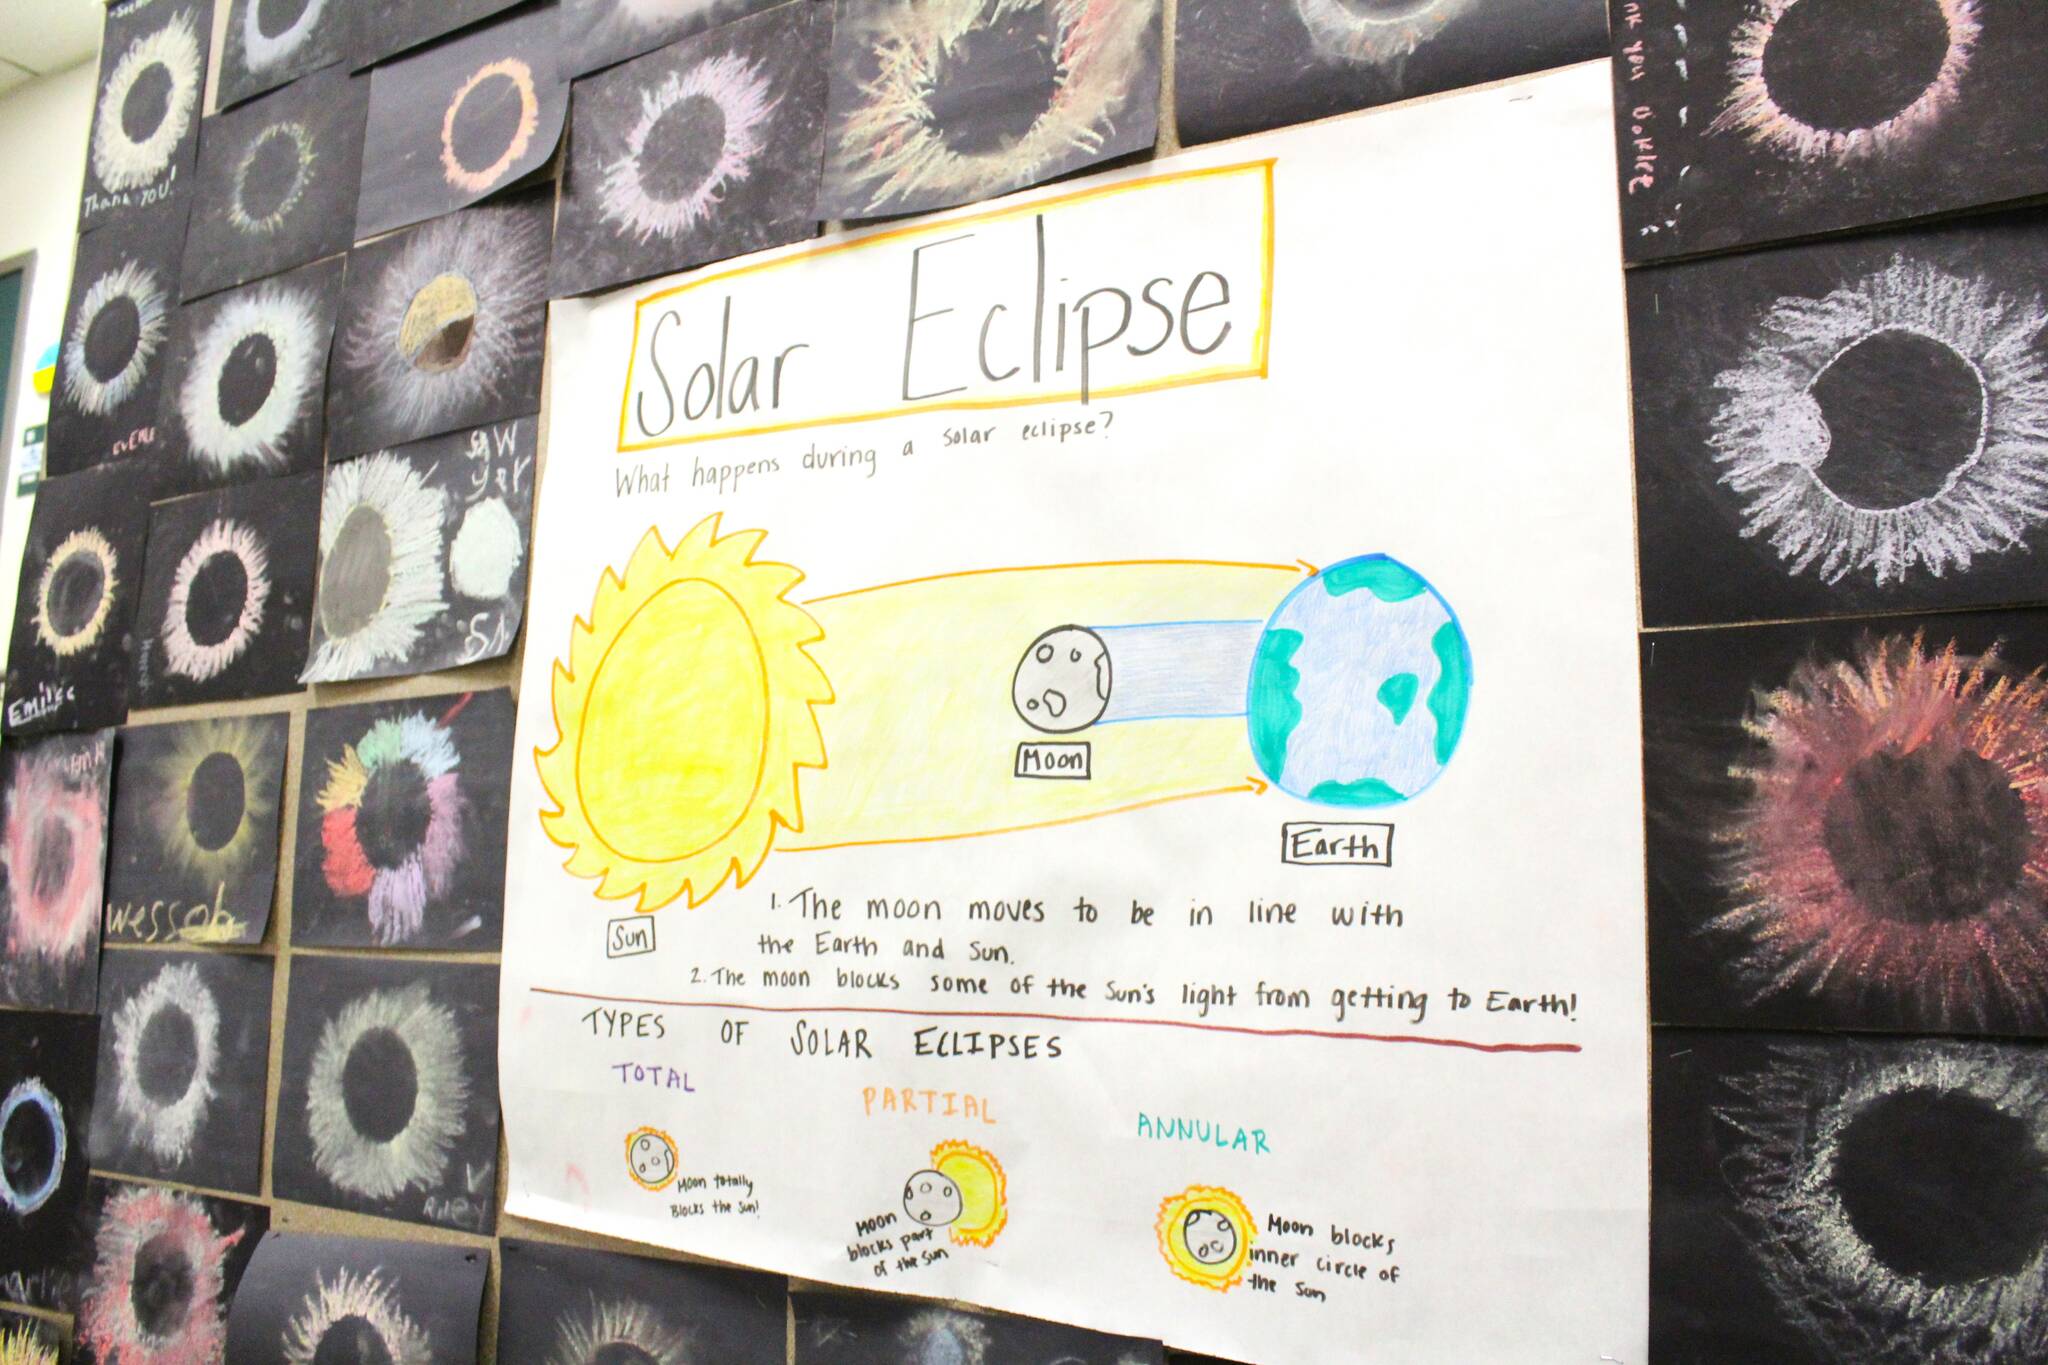 Solar Eclipse
What happens during a solar eclipse?
Moon
Earth
Sun
1. The moon moves to be in line with
the Earth and Sun.
2. The moon blocks some of the Sun's light from getting to Earth!
TYPES OF SOLAR ECLIPSES
TOTAL
Moon totally
Blocks the Sun!
PARTIAL
Moon
blocks part
of the Sun
ANNULAR
Moon blocks
inner circle of
the Sun
Thank YOU!
Emilee
Riley